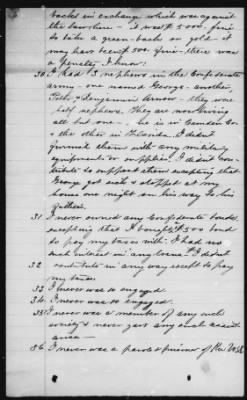 backs in exchange which was against
the law there - it was $5000. fine
to take a green-back or gold - it
may have been $500. fine - there was
a penalty I know!
30 I had 3 nephews in the Confederate
army - one named George - another,
Peter & Benjamin Arnow - they were
my nephews. They are now living
all but one - he is in Camden Co
& the other in Florida. I didn't
furnish them with any military
equipments or supplies. I didn't con-
tribute to support them excepting that
George got sick & stopped at my
house one night on his way to his
father's.
31 I never owned any Confederate bonds
excepting that I bought $500 bond
to pay my taxes with. I had no
such interest in any loans. I didn't
32 contribute in any way except to pay
my taxes.
33. I never was so engaged.
34. I never was so engaged.
35. I never was a member of any such
society & never gave any such assist
ance -
36 I never was a paroled prisoner of the U.S.